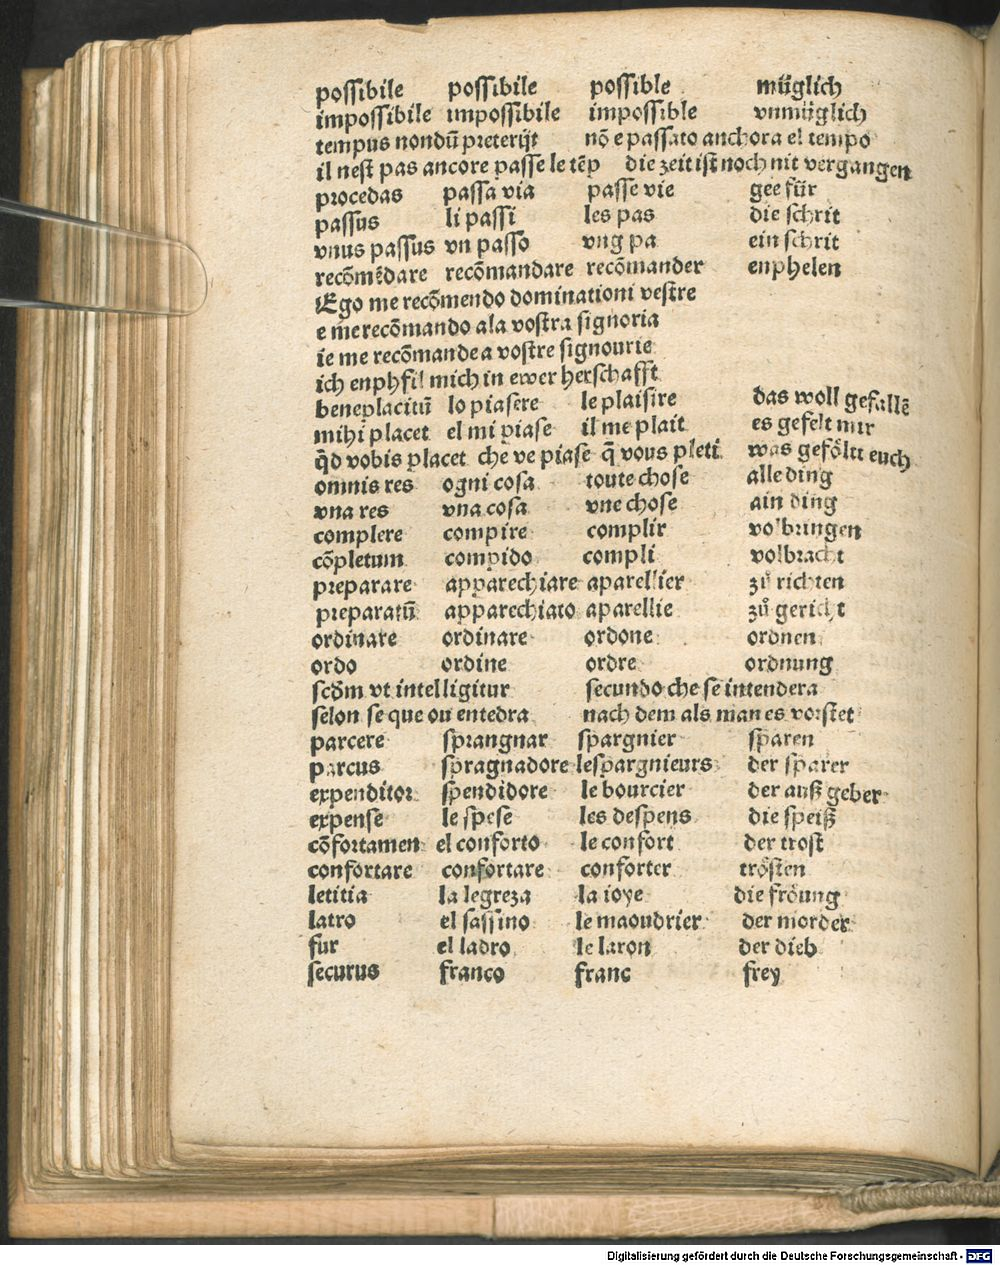 possibile possibile possible müglich
impossibile impossibile impossible vnmüglich
tempus nondū preterijt nō e passato anchora el tempo
il nest pas ancore passe le tēp die zeit ist noch nit vergangen
procedas passa via passe vie gee für
passus li passi les pas die schrit
vnus passus vn passo vng pa ein schrit
recōmēdare recōmandare recōmander enphelen
Ego me recōmendo dominationi vestre
e me recōmando ala vostra signoria
ie me recōmande a vostre signourie
ich enphfil mich in ewer herschafft
beneplacitū lo piasere le plaisire das woll gefallē
mihi placet el mi piase il me plait es gefelt mir
q̄d vobis placet che ve piase q̄ vous pleti was geföltt euch
omnis res ogni cosa toute chose alle ding
vna res vna cosa vne chose ain ding
complere compire complir volbringen
cōpletum compido compli volbracht
preparare apparechiare aparellier zů richten
preparatū apparechiato aparellie zů gericht
ordinare ordinare ordone ordnen
ordo ordine ordre ordnung
scďm vt intelligitur secundo che se intendera
selon se que ou entedra nach dem als man es vorstet
parcere sprangnar spargnier sparen
parcus spragnadore lespargnieurs der sparer
expenditor spendidore le bourcier der auß geber
expense le spese les despens die speiß
cōfortamen el conforto le confort der trost
confortare confortare conforter trösten
letitia la legreza la ioye die fröung
latro el sassino le maoudrier der morder
fur el ladro le laron der dieb
securus franco franc frey
Digitalisierung gefördert durch die Deutsche Forschungsgemeinschaft - DFG